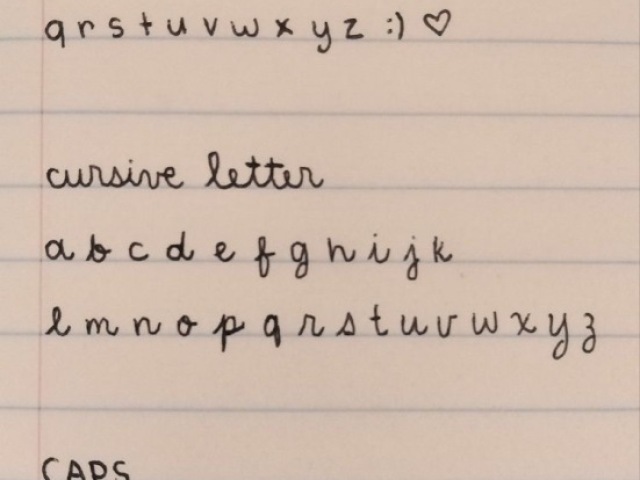 q r s t u v w x y z :) ♡
cursive letter
a b c d e f g h i j k
l m n o p q r s t u v w x y z
CAPS